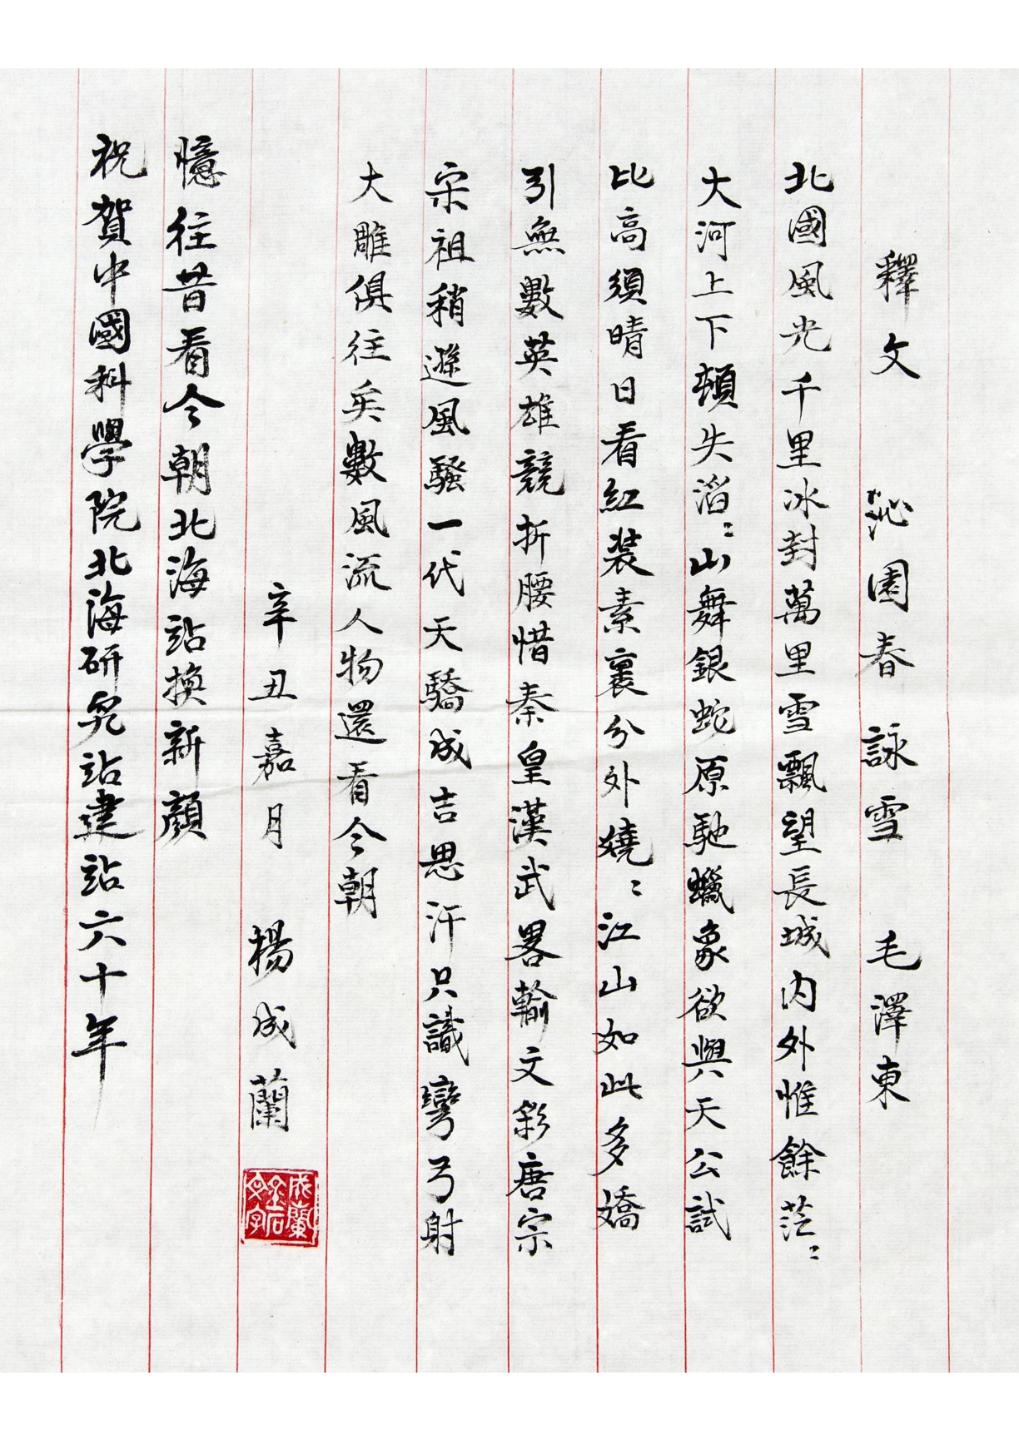 釋文 沁園春 詠雪 毛澤東
北國風光千里冰封萬里雪飄望長城内外惟餘茫〻
大河上下頓失滔〻山舞銀蛇原馳蠟象欲與天公試
比高須晴日看紅裝素裹分外嬈〻江山如此多嬌
引無數英雄競折腰惜秦皇漢武畧輸文彩唐宗
宋祖稍遜風騷一代天驕成吉思汗只識彎弓射
大雕俱往矣數風流人物還看今朝
辛丑嘉月 楊成蘭
成蘭金石文字
憶往昔看今朝北海站換新顔
祝賀中國科學院北海研究站建站六十年